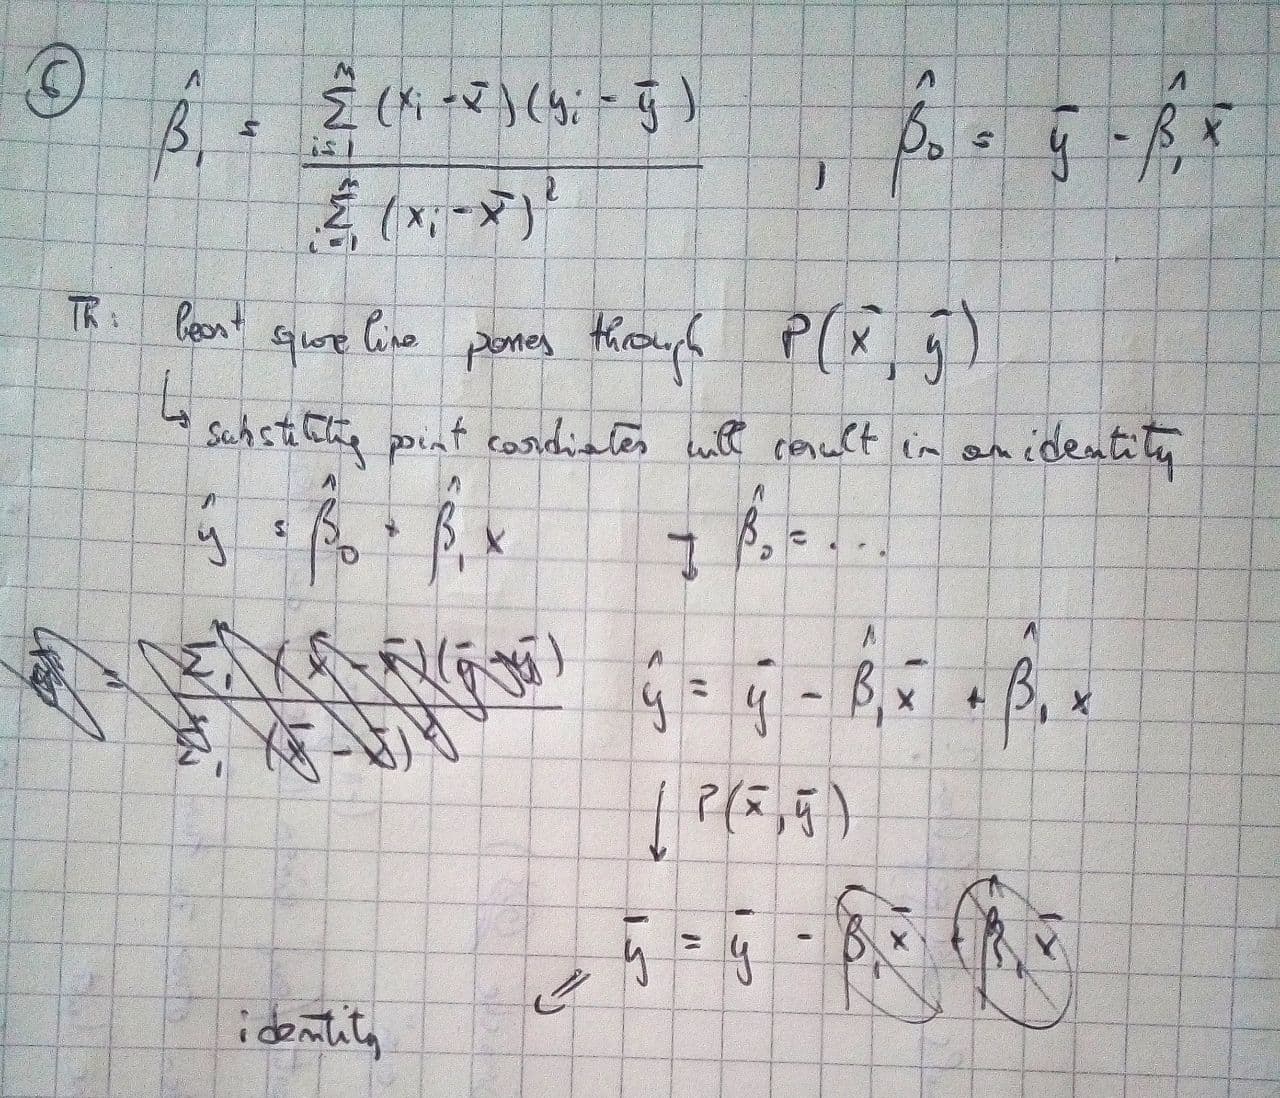 6
β̂₁ = Σⁿᵢ₌₁ (xᵢ - x̄)(yᵢ - ȳ) / Σⁿᵢ₌₁ (xᵢ - x̄)² , β̂₀ = ȳ - β̂₁ x̄
Th: least square line passes through P(x̄, ȳ)
↳ substituting point coordinates will result in an identity
ŷ = β̂₀ + β̂₁ x → β̂₀ = ...
ŷ = ȳ - β̂₁ x̄ + β̂₁ x
↓ P(x̄, ȳ)
ȳ = ȳ - β̂₁ x̄ + β̂₁ x̄
⇙
identity